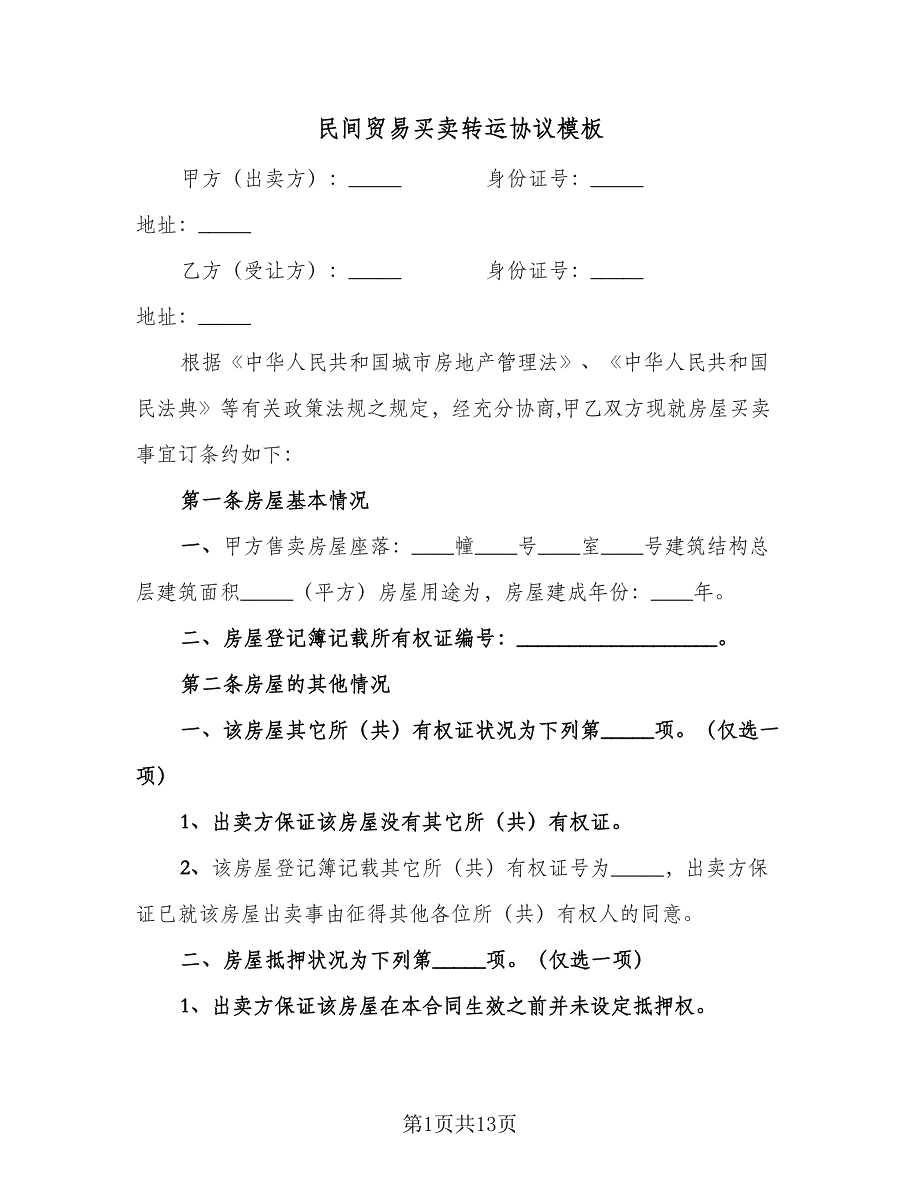 民间贸易买卖转运协议模板
甲方（出卖方）：_____ 身份证号：_____
地址：_____
乙方（受让方）：_____ 身份证号：_____
地址：_____
根据《中华人民共和国城市房地产管理法》、《中华人民共和国
民法典》等有关政策法规之规定，经充分协商,甲乙双方现就房屋买卖
事宜订条约如下：
第一条房屋基本情况
一、甲方售卖房屋座落：____幢____号____室____号建筑结构总
层建筑面积_____（平方）房屋用途为，房屋建成年份：____年。
二、房屋登记簿记载所有权证编号：___________________。
第二条房屋的其他情况
一、该房屋其它所（共）有权证状况为下列第_____项。（仅选一
项）
1、出卖方保证该房屋没有其它所（共）有权证。
2、该房屋登记簿记载其它所（共）有权证号为_____，出卖方保
证已就该房屋出卖事由征得其他各位所（共）有权人的同意。
二、房屋抵押状况为下列第_____项。（仅选一项）
1、出卖方保证该房屋在本合同生效之前并未设定抵押权。
第1页共13页